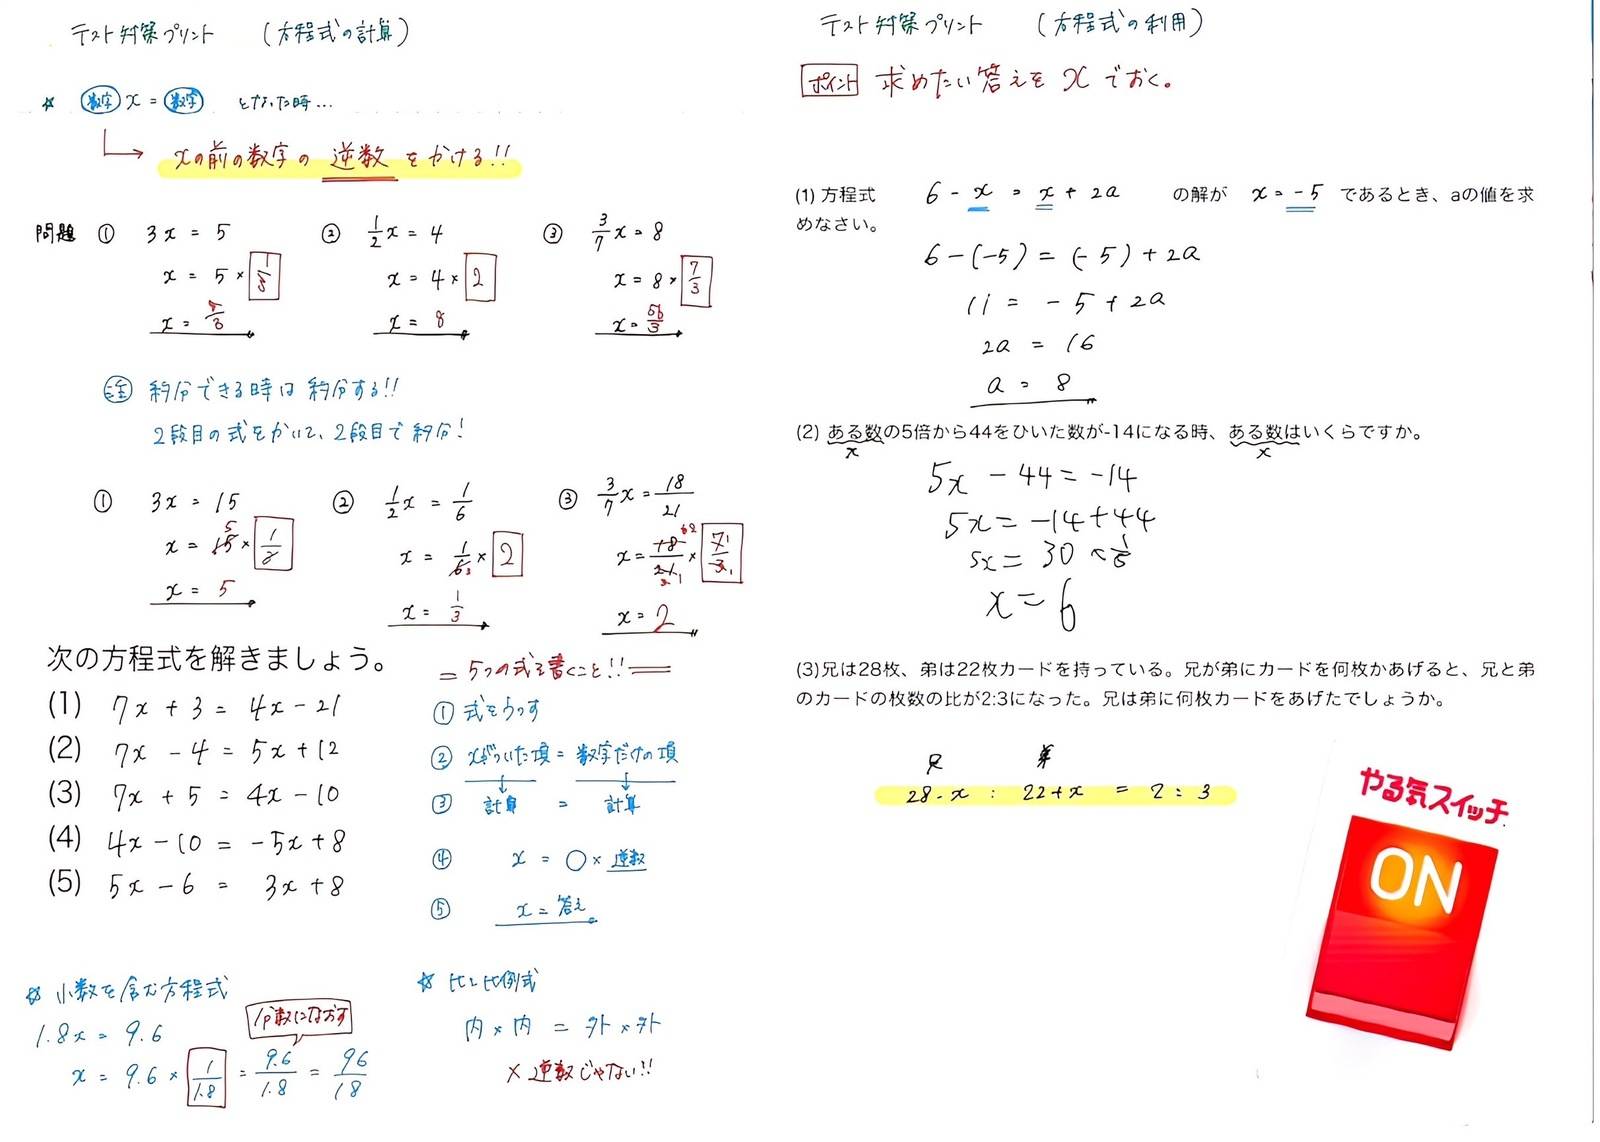 テスト対策プリント (方程式の計算)
☆ 数字 x = 数字 となった時…
xの前の数字の 逆数 をかける!!
問題 ① 3x = 5 ② 1/2 x = 4 ③ 3/7 x = 8
x = 5 × 1/3 x = 4 × 2 x = 8 × 7/3
x = 5/3 x = 8 x = 56/3
注 約分できる時は 約分する!!
2段目の式をかいて、2段目で約分!
① 3x = 15 ② 1/2 x = 1/6 ③ 3/7 x = 18/21
x = 15 5 × 1/3 x = 1/6 3 × 2 x = 18/21 × 7/3
x = 5 x = 1/3 x = 2
次の方程式を解きましょう。
(1) 7x + 3 = 4x - 21
(2) 7x - 4 = 5x + 12
(3) 7x + 5 = 4x - 10
(4) 4x - 10 = -5x + 8
(5) 5x - 6 = 3x + 8
= 5つの式を書くこと!! =
① 式をうつす
② xがついた項 = 数字だけの項
③ 計算 = 計算
④ x = ○ × 逆数
⑤ x = 答え
☆ 小数を含む方程式
1.8x = 9.6
分数になおす
x = 9.6 × 1/1.8 = 9.6/1.8 = 96/18
☆ 比と比例式
内 × 内 = 外 × 外
× 逆数じゃない!!
テスト対策プリント (方程式の利用)
ポイント 求めたい答えを x でおく。
(1) 方程式 6 - x = x + 2a の解が x = -5 であるとき、aの値を求
めなさい。
6 - (-5) = (-5) + 2a
11 = -5 + 2a
2a = 16
a = 8
(2) ある数の5倍から44をひいた数が-14になる時、ある数はいくらですか。
x x
5x - 44 = -14
5x = -14 + 44
5x = 30 × 1/5
x = 6
(3)兄は28枚、弟は22枚カードを持っている。兄が弟にカードを何枚かあげると、兄と弟
のカードの枚数の比が2:3になった。兄は弟に何枚カードをあげたでしょうか。
兄 弟
28 - x : 22 + x = 2 : 3
やる気スイッチ
ON